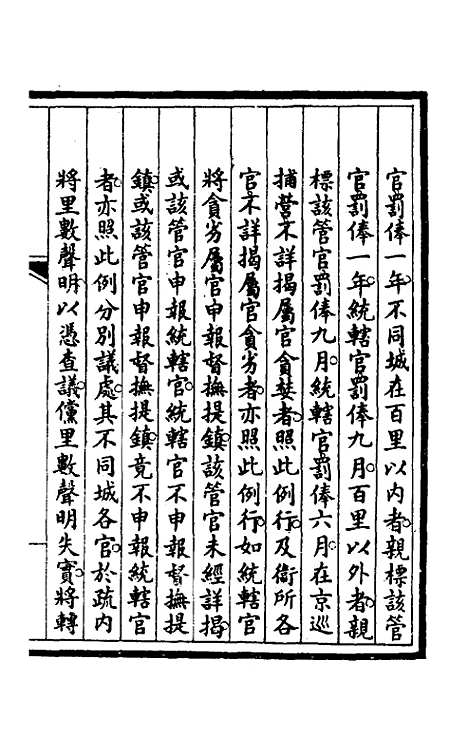 官罰俸一年不同城在百里以內者親標該管
官罰俸一年統轄官罰俸九月百里以外者親
標該管官罰俸九月統轄官罰俸六月在京巡
捕營不詳揭屬官貪婪者照此例行及衛所各
官不詳揭屬官貪劣者亦照此例行如統轄官
將貪劣屬官申報督撫提鎮該管官未經詳揭
或該管官申報統轄官統轄官不申報督撫提
鎮或該管官申報督撫提鎮竟不申報統轄官
者亦照此例分別議處其不同城各官於疏内
將里數聲明以憑查議儻里數聲明失實將轉